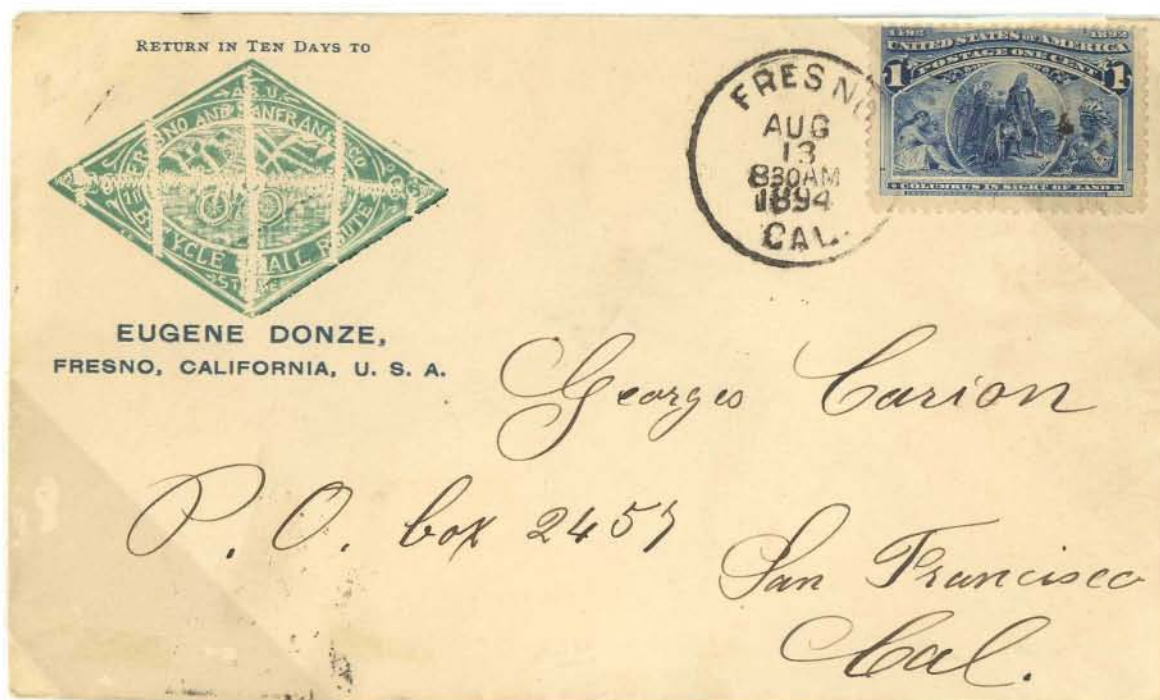 RETURN IN TEN DAYS TO
A.R.U.
FRESNO AND SANFRANSISCO
BICYCLE MAIL ROUTE
EUGENE DONZE,
FRESNO, CALIFORNIA, U. S. A.
FRESNO
AUG
13
830AM
1894
CAL.
1492 1892
UNITED STATES OF AMERICA
POSTAGE ONE CENT
1 1
COLUMBUS IN SIGHT OF LAND
Georges Carion
P. O. box 2457
San Francisco
Cal.